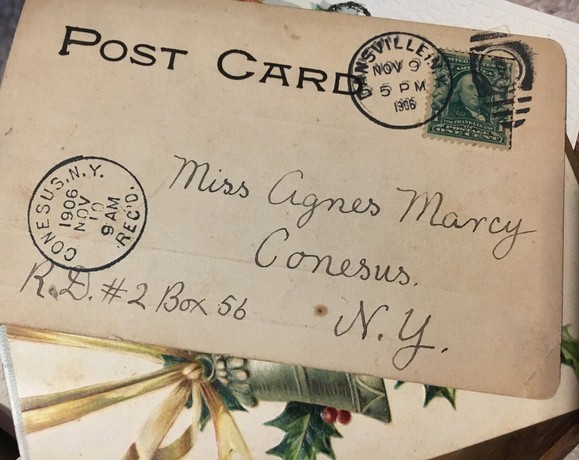 POST CARD
DANSVILLE, N.Y.
NOV 9
5 PM
1906
CONESUS, N.Y.
1906
NOV
10
9 AM
REC'D.
Miss Agnes Marcy
Conesus.
N.Y.
R.D. #2 Box 56